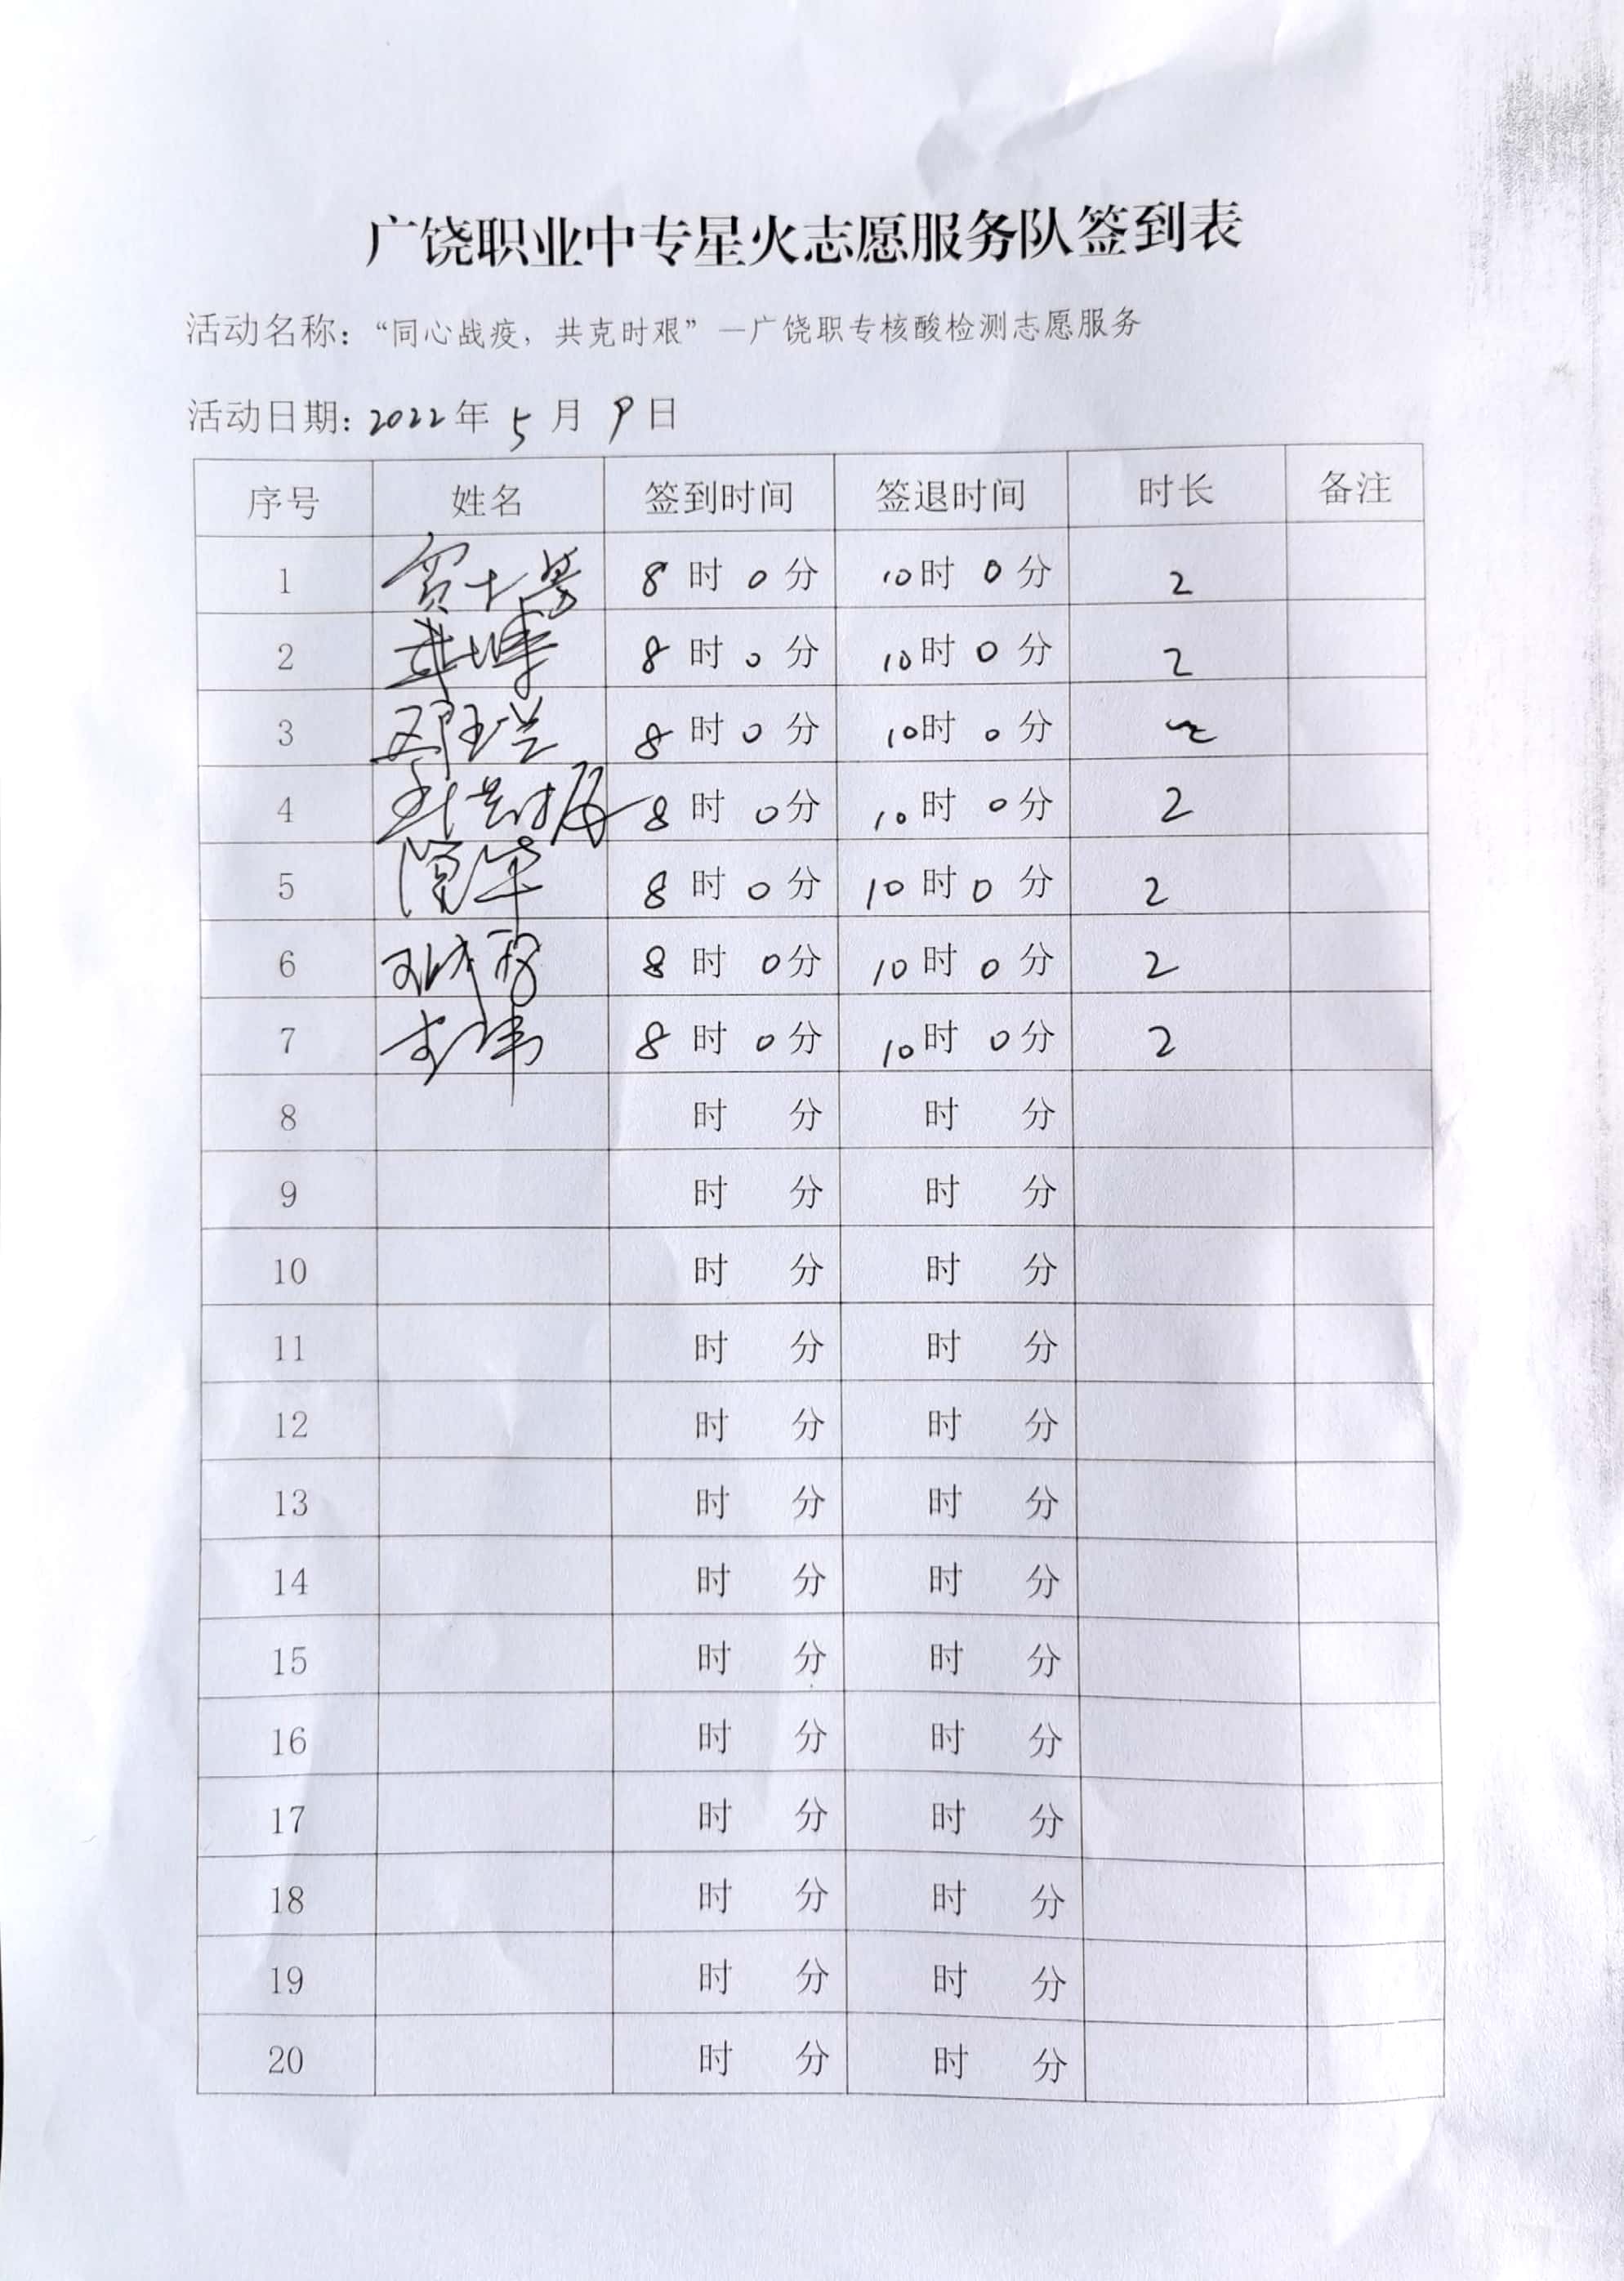 广饶职业中专星火志愿服务队签到表
活动名称：“同心战疫，共克时艰”—广饶职专核酸检测志愿服务
活动日期：2022年 5 月 9 日
序号 姓名 签到时间 签退时间 时长 备注
1 8 时 0 分 10 时 0 分 2
2 8 时 0 分 10 时 0 分 2
3 8 时 0 分 10 时 0 分
4 8 时 0 分 10 时 0 分 2
5 8 时 0 分 10 时 0 分 2
6 8 时 0 分 10 时 0 分 2
7 李伟 8 时 0 分 10 时 0 分 2
8 时 分 时 分
9 时 分 时 分
10 时 分 时 分
11 时 分 时 分
12 时 分 时 分
13 时 分 时 分
14 时 分 时 分
15 时 分 时 分
16 时 分 时 分
17 时 分 时 分
18 时 分 时 分
19 时 分 时 分
20 时 分 时 分